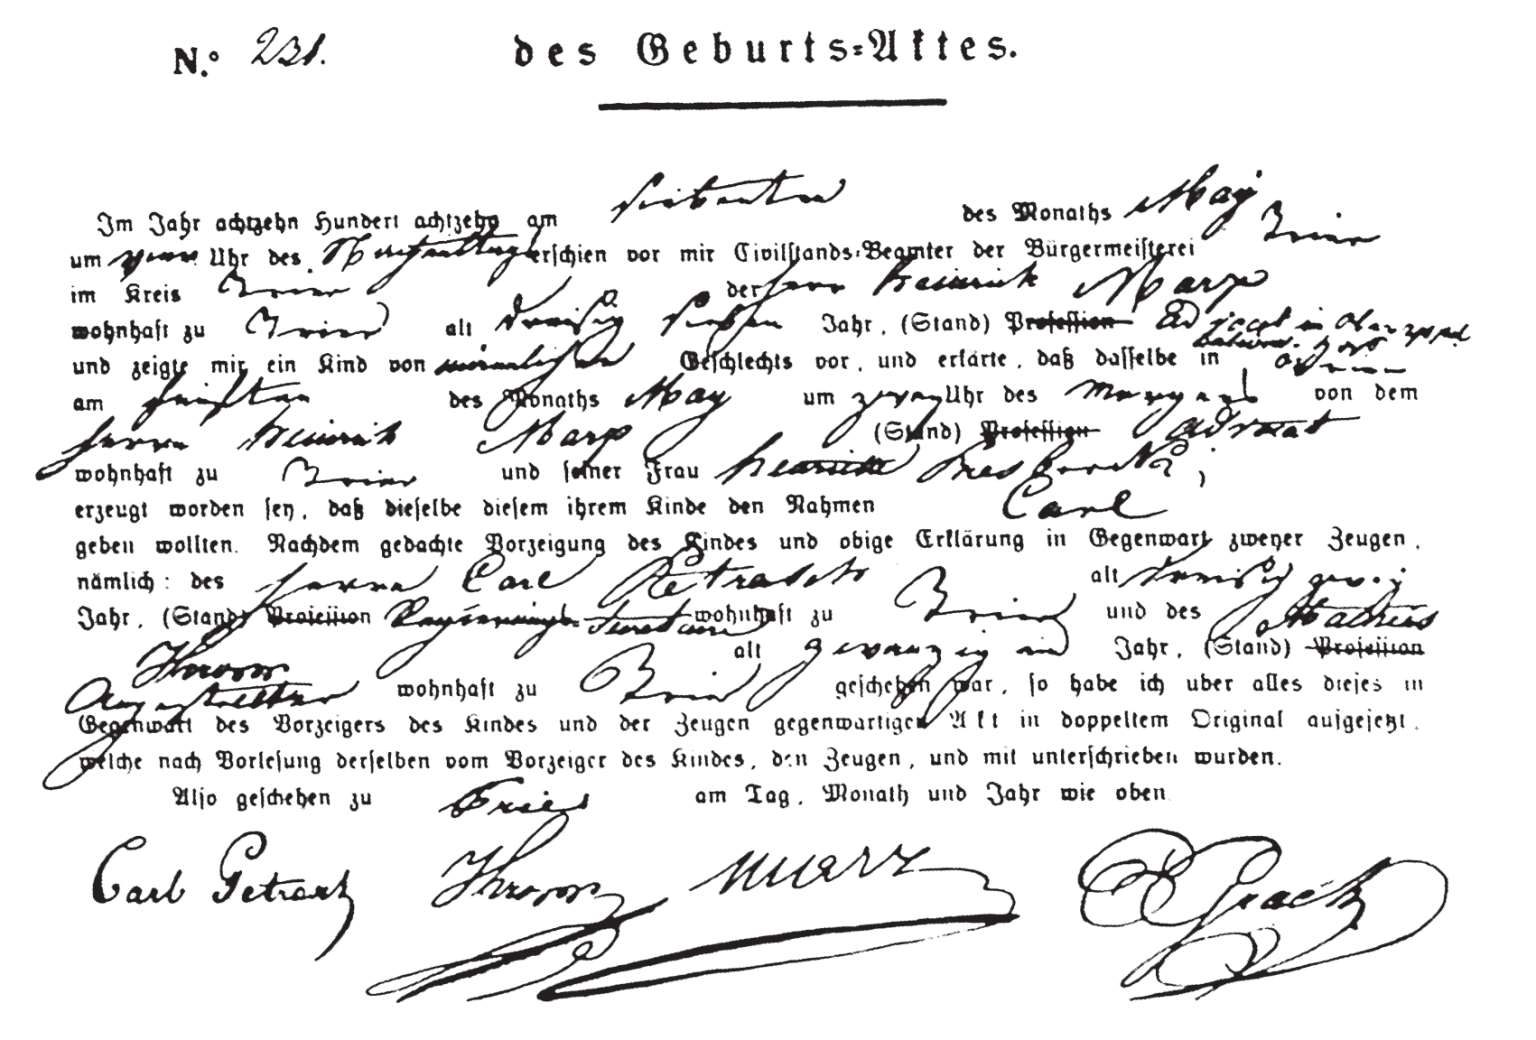 N.º 231. des Geburts=Aktes.
Im Jahr achtzehn Hundert achtzehn am siebenten des Monaths May
um vier Uhr des Nachmittags erschien vor mir Civilstands-Beamter der Bürgermeisterei Trier
im Kreis Trier der Herr Heinrich Marx
wohnhaft zu Trier alt dreisig sieben Jahr, (Stand) Profession Advocat
und zeigte mir ein Kind von männlichen Geschlechts vor, und erklärte, daß dasselbe in Trier
am fünften des Monaths May um zwey Uhr des Morgens von dem
Herrn Heinrich Marx (Stand) Profession Advocat
wohnhaft zu Trier und seiner Frau Henriette Presborck;
erzeugt worden sey, daß dieselbe diesem ihrem Kinde den Nahmen Carl
geben wollten. Nachdem gedachte Vorzeigung des Kindes und obige Erklärung in Gegenwart zweyer Zeugen,
nämlich: des Herrn Carl Petrasch alt dreisig zwey
Jahr, (Stand) Profession Regierungs-Secretair wohnhaft zu Trier und des Mathias
Kropp alt zwanzig ein Jahr, (Stand) Profession
Angestellter wohnhaft zu Trier geschehen war, so habe ich uber alles dieses in
Gegenwart des Vorzeigers des Kindes und der Zeugen gegenwartigen Akt in doppeltem Original aufgesetzt,
welche nach Vorlesung derselben vom Vorzeiger des Kindes, den Zeugen, und mit unterschrieben wurden.
Also geschehen zu Trier am Tag, Monath und Jahr wie oben
Carl Petrasch Kropp Marx E Grach